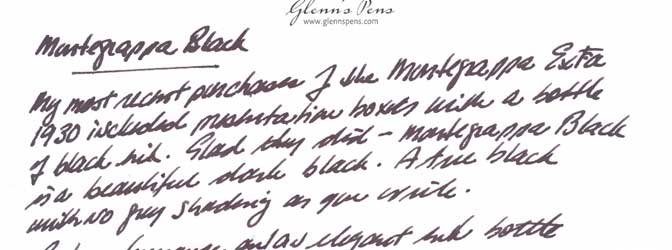 Glenn's Pens
www.glennspens.com
Montegrappa Black
My most recent purchases of the Montegrappa Extra
1930 included presentation boxes with a bottle
of black ink. Glad they did - Montegrappa Black
is a beautiful dark black. A true black
with no grey shading as you write.
an elegant ink bottle